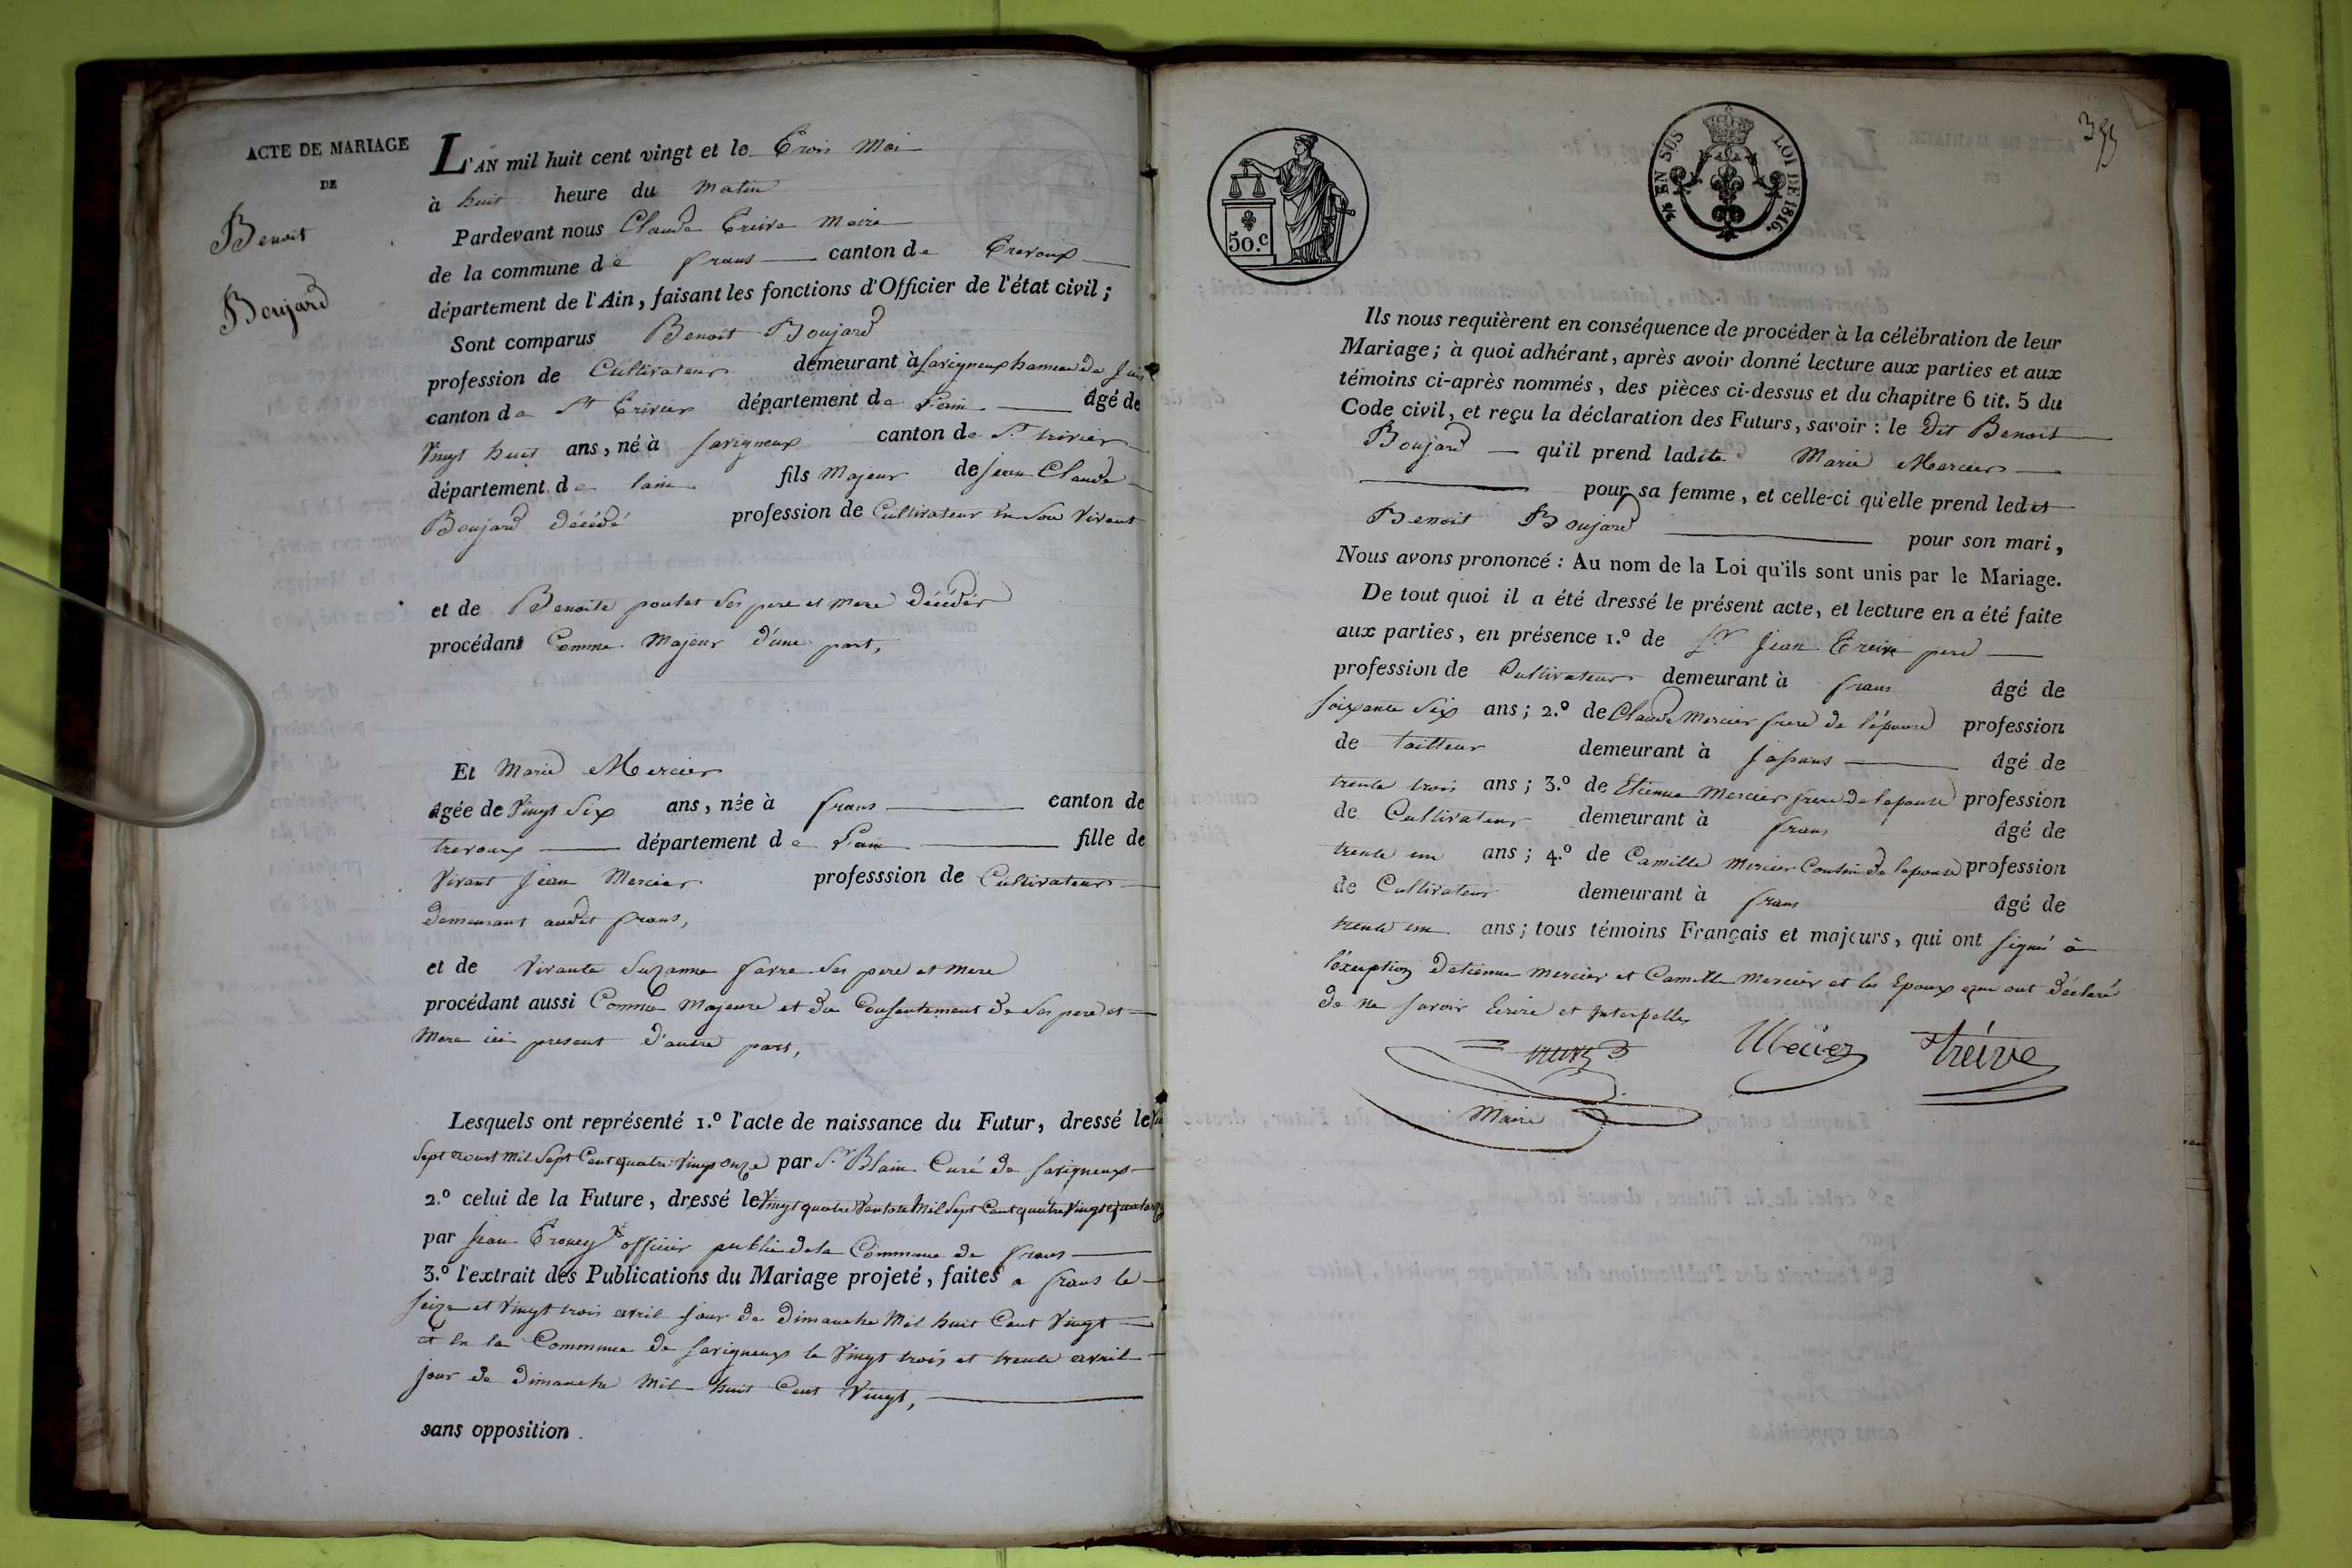 ACTE DE MARIAGE
DE
Benoit
Boujard
L'AN mil huit cent vingt et le Trois Mai
à huit heure du matin
Pardevant nous Claude Treive Maire
de la commune de frans canton de Trevoux
département de l'Ain, faisant les fonctions d'Officier de l'état civil;
Sont comparus Benoit Boujard
profession de Cultivateur demeurant à Savigneux hameau de
canton de St Trivier département de l'ain âgé de
Vingt huit ans, né à Savigneux canton de St trivier
département de lain fils Majeur de Jean Claude
Boujard décédé profession de Cultivateur En Son Vivant
et de Benoite poulet Ses pere et mere décédés
procédant Comme Majeur d'une part,
Et Marie Mercier
âgée de Vingt Six ans, née à frans canton de
trevoux département de l'ain fille de
Vivant Jean Mercier professsion de Cultivateur
demeurant audit frans,
et de Vivante Suzanne favre Ses pere et mere
procédant aussi Comme Majeure et du Consentement de Ses pere et
Mere ici present d'autre part,
Lesquels ont représenté 1.º l'acte de naissance du Futur, dressé le
Sept aoust Mil Sept Cent quatre Vingt onze par Sr Blain Curé de Savigneux
2.º celui de la Future, dressé le Vingt quatre Ventose Mil Sept Cent quatre Vingt quatorze
par Jean officier public de la Commune de frans
3.º l'extrait des Publications du Mariage projeté, faites a frans le
Seize et Vingt trois avril jour de Dimanche Mil huit Cent Vingt
et En la Commune de Savigneux le Vingt trois et trente avril
jour de Dimanche Mil huit Cent Vingt,
sans opposition.
50.c
¼ EN SUS
LOI DE 1816.
Ils nous requièrent en conséquence de procéder à la célébration de leur
Mariage; à quoi adhérant, après avoir donné lecture aux parties et aux
témoins ci-après nommés, des pièces ci-dessus et du chapitre 6 tit. 5 du
Code civil, et reçu la déclaration des Futurs, savoir : le dit Benoit
Boujard qu'il prend ladite Marie Mercier
pour sa femme, et celle-ci qu'elle prend ledit
Benoit Boujard pour son mari,
Nous avons prononcé : Au nom de la Loi qu'ils sont unis par le Mariage.
De tout quoi il a été dressé le présent acte, et lecture en a été faite
aux parties, en présence 1.º de Sr Jean Treive pere
profession de Cultivateur demeurant à frans âgé de
Soixante Six ans; 2.º de Claude Mercier frere de l'épouse profession
de tailleur demeurant à Jassans âgé de
trente trois ans; 3.º de Etienne Mercier frere de lepouse profession
de Cultivateur demeurant à frans âgé de
trente un ans; 4.º de Camille Mercier Cousin de lepouse profession
de Cultivateur demeurant à frans âgé de
trente un ans; tous témoins Français et majeurs, qui ont Signé à
l'exception detienne Mercier et Camille Mercier et les Epoux que ont déclaré
de ne Savoir Ecrire et Interpellés
Mecier
treive
Maire